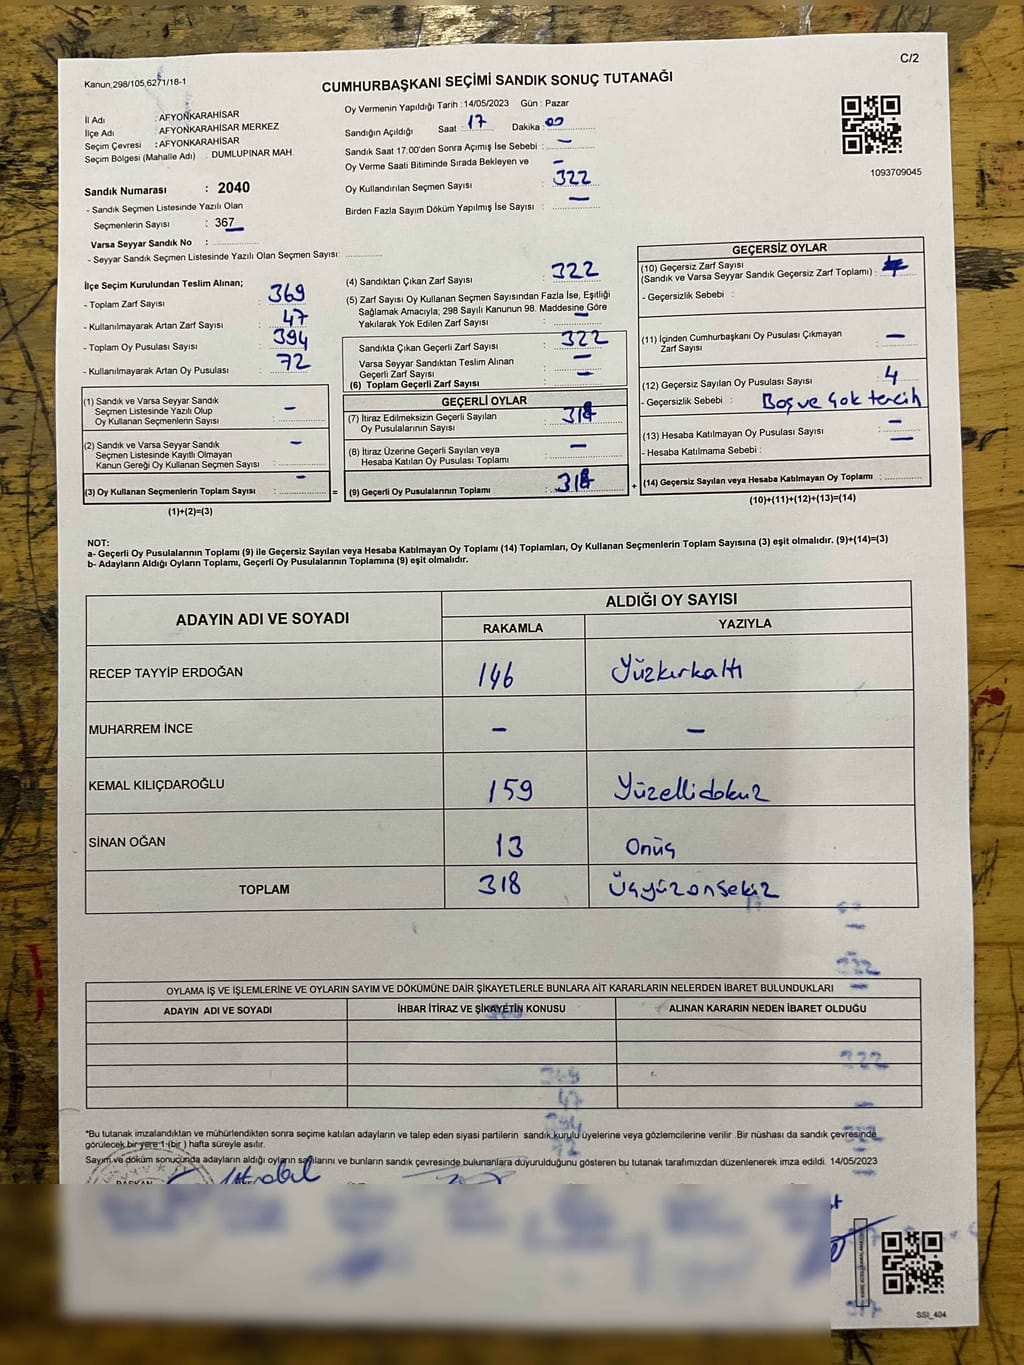 Kanun;298/105,6271/18-1
C/2
CUMHURBAŞKANI SEÇİMİ SANDIK SONUÇ TUTANAĞI
İl Adı : AFYONKARAHİSAR
İlçe Adı : AFYONKARAHİSAR MERKEZ
Seçim Çevresi : AFYONKARAHİSAR
Seçim Bölgesi (Mahalle Adı) : DUMLUPINAR MAH.
Sandık Numarası : 2040
- Sandık Seçmen Listesinde Yazılı Olan
Seçmenlerin Sayısı : 367
Varsa Seyyar Sandık No :
- Seyyar Sandık Seçmen Listesinde Yazılı Olan Seçmen Sayısı:
Oy Vermenin Yapıldığı Tarih : 14/05/2023 Gün : Pazar
Sandığın Açıldığı Saat : 17 Dakika : 00
Sandık Saat 17:00'den Sonra Açımış İse Sebebi : —
Oy Verme Saati Bitiminde Sırada Bekleyen ve —
Oy Kullandırılan Seçmen Sayısı : 322
Birden Fazla Sayım Döküm Yapılmış İse Sayısı : —
1093709045
İlçe Seçim Kurulundan Teslim Alınan;
- Toplam Zarf Sayısı : 369
- Kullanılmayarak Artan Zarf Sayısı : 47
- Toplam Oy Pusulası Sayısı : 394
- Kullanılmayarak Artan Oy Pusulası : 72
(1) Sandık ve Varsa Seyyar Sandık
Seçmen Listesinde Yazılı Olup
Oy Kullanan Seçmenlerin Sayısı : —
(2) Sandık ve Varsa Seyyar Sandık
Seçmen Listesinde Kayıtlı Olmayan
Kanun Gereği Oy Kullanan Seçmen Sayısı : —
(3) Oy Kullanan Seçmenlerin Toplam Sayısı : —
(1)+(2)=(3)
(4) Sandıktan Çıkan Zarf Sayısı : 322
(5) Zarf Sayısı Oy Kullanan Seçmen Sayısından Fazla İse, Eşitliği
Sağlamak Amacıyla; 298 Sayılı Kanunun 98. Maddesine Göre
Yakılarak Yok Edilen Zarf Sayısı : —
Sandıkta Çıkan Geçerli Zarf Sayısı : 322
Varsa Seyyar Sandıktan Teslim Alınan
Geçerli Zarf Sayısı : —
(6) Toplam Geçerli Zarf Sayısı : —
GEÇERLİ OYLAR
(7) İtiraz Edilmeksizin Geçerli Sayılan
Oy Pusulalarının Sayısı : 318
(8) İtiraz Üzerine Geçerli Sayılan veya
Hesaba Katılan Oy Pusulası Toplamı : —
(9) Geçerli Oy Pusulalarının Toplamı : 318
=
+
GEÇERSİZ OYLAR
(10) Geçersiz Zarf Sayısı
(Sandık ve Varsa Seyyar Sandık Geçersiz Zarf Toplamı) :
- Geçersizlik Sebebi :
(11) İçinden Cumhurbaşkanı Oy Pusulası Çıkmayan
Zarf Sayısı : —
(12) Geçersiz Sayılan Oy Pusulası Sayısı : 4
- Geçersizlik Sebebi : Boş ve Çok tercih
(13) Hesaba Katılmayan Oy Pusulası Sayısı : —
- Hesaba Katılmama Sebebi : —
(14) Geçersiz Sayılan veya Hesaba Katılmayan Oy Toplamı :
(10)+(11)+(12)+(13)=(14)
NOT:
a- Geçerli Oy Pusulalarının Toplamı (9) ile Geçersiz Sayılan veya Hesaba Katılmayan Oy Toplamı (14) Toplamları, Oy Kullanan Seçmenlerin Toplam Sayısına (3) eşit olmalıdır. (9)+(14)=(3)
b- Adayların Aldığı Oyların Toplamı, Geçerli Oy Pusulalarının Toplamına (9) eşit olmalıdır.
ADAYIN ADI VE SOYADI
ALDIĞI OY SAYISI
RAKAMLA YAZIYLA
RECEP TAYYİP ERDOĞAN 146 Yüzkırkaltı
MUHARREM İNCE — —
KEMAL KILIÇDAROĞLU 159 Yüzellidokuz
SİNAN OĞAN 13 Onüç
TOPLAM 318 Üçyüzonsekiz
OYLAMA İŞ VE İŞLEMLERİNE VE OYLARIN SAYIM VE DÖKÜMÜNE DAİR ŞİKAYETLERLE BUNLARA AİT KARARLARIN NELERDEN İBARET BULUNDUKLARI
ADAYIN ADI VE SOYADI İHBAR İTİRAZ VE ŞİKAYETİN KONUSU ALINAN KARARIN NEDEN İBARET OLDUĞU
*Bu tutanak imzalandıktan ve mühürlendikten sonra seçime katılan adayların ve talep eden siyasi partilerin sandık kurulu üyelerine veya gözlemcilerine verilir .Bir nüshası da sandık çevresinde
görülecek bir yere 1-(bir ) hafta süreyle asılır.
Sayım ve döküm sonucunda adayların aldığı oyların sayılarını ve bunların sandık çevresinde bulunanlara duyurulduğunu gösteren bu tutanak tarafımızdan düzenlenerek imza edildi. 14/05/2023
BAŞKAN
SSI_404